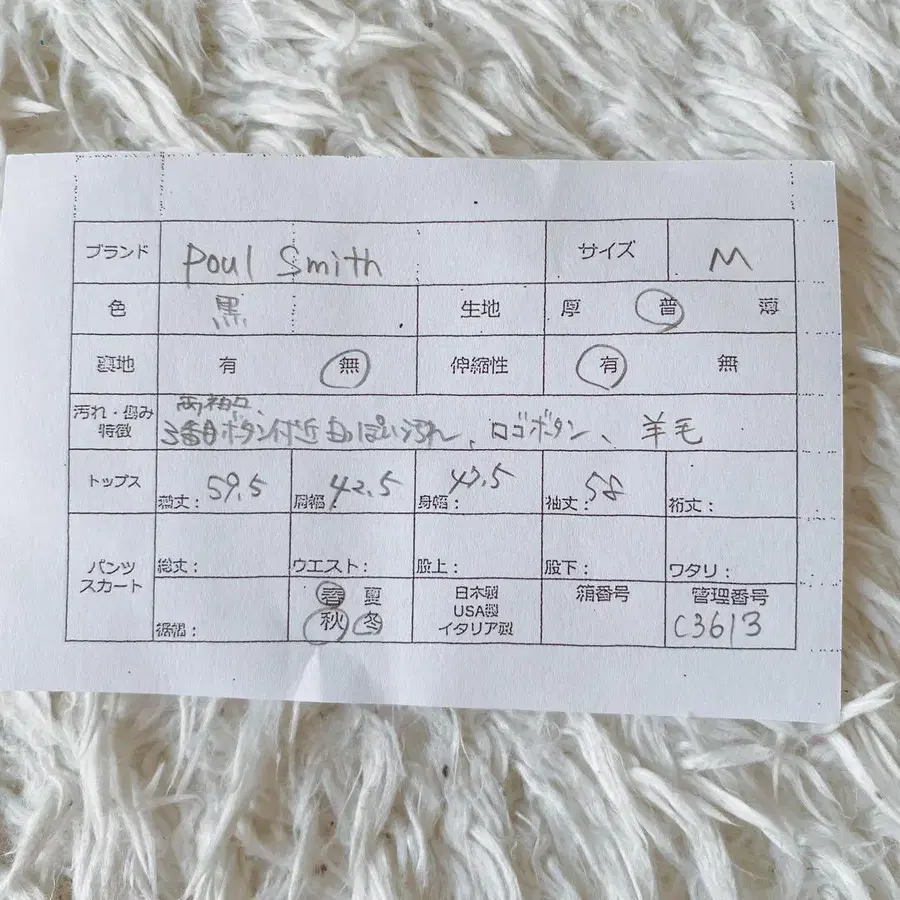 ブランド Poul Smith サイズ M
色 黒 生地 厚 普 薄
裏地 有 無 伸縮性 有 無
両袖口、
汚れ・傷み
特徴
3番目ボタン付近白っぽい汚れ、ロゴボタン、羊毛
トップス 着丈: 59.5 肩幅: 42.5 身幅: 47.5 袖丈: 58 裄丈:
パンツ
スカート
総丈: ウエスト: 股上: 股下: ワタリ:
裾幅:
春 夏
秋 冬
日本製
USA製
イタリア製
箱番号
管理番号
C3613